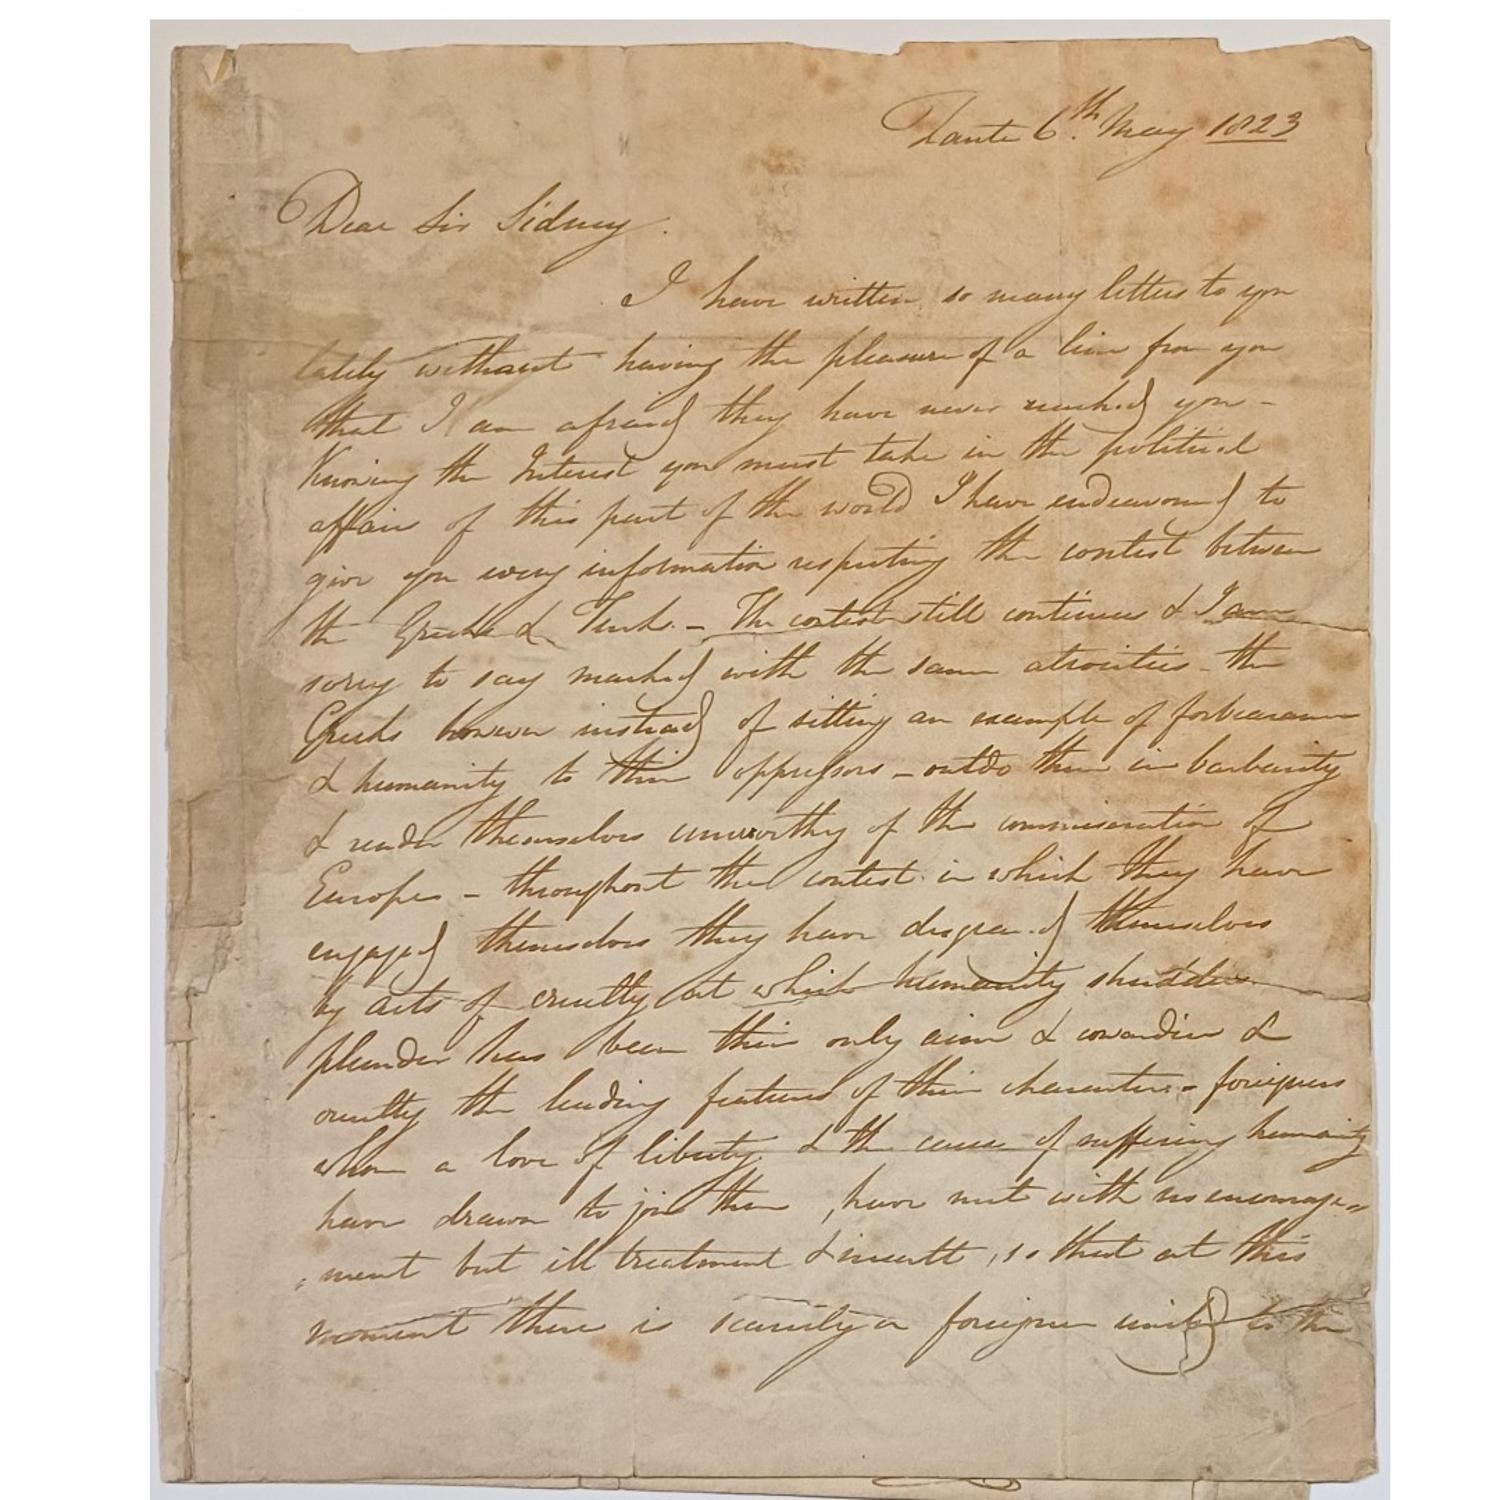 Zante 6th. May 1823
Dear Sir Sidney.
I have written so many letters to you
lately without having the pleasure of a line from you
that I am afraid they have never reached you -
Knowing the Interest you must take in the political
affair of this part of the world I have endeavoured to
give you every information respecting the contest between
the Greeks & Turks. - The contest still continues & I am
sorry to say marked with the same atrocities - the
Greeks however instead of setting an example of forbearance
& humanity to their oppressors - outdo them in barbarity
& render themselves unworthy of the commiseration of
Europe - throughout the contest in which they have
engaged themselves they have disgraced themselves
by acts of cruelty at which humanity shudders
plunder has been their only aim & cowardice &
cruelty the leading features of their character - foreigners
whom a love of liberty & the cause of suffering humanity
have drawn to join them, have met with no encourage=
=ment but ill treatment & insult, so that at this
moment there is scarcely a foreigner united to the